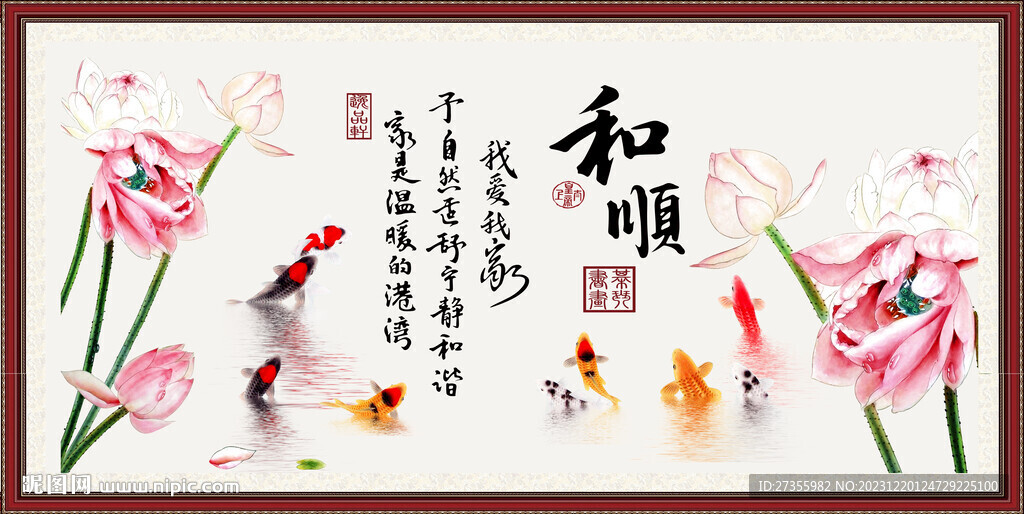 和順
我爱我家
予自然舌舒宁静和谐
家是温暖的港湾
逸品軒
琴棋書畫
昵图网 www.nipic.com
ID:27355982 NO:20231220124729225100